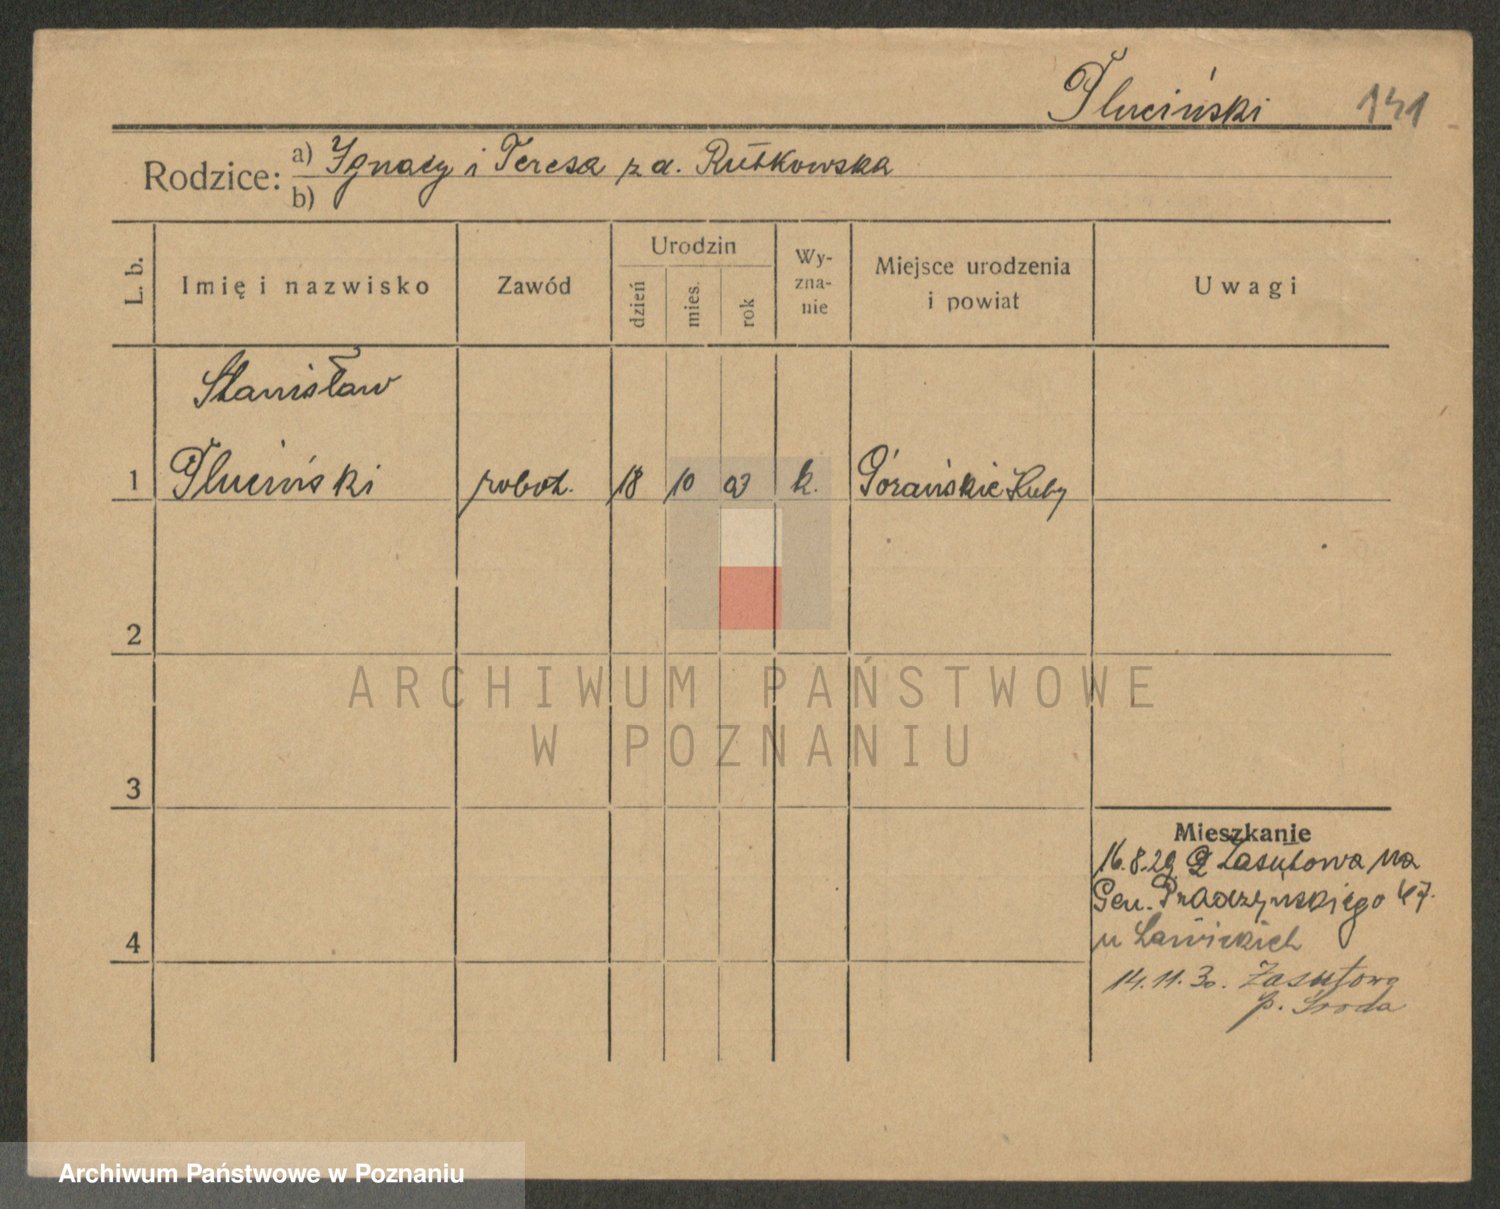 Pluciński 141
Rodzice: a) Ignacy i Teresa z d. Rutkowska
b)
L. b. Imię i nazwisko Zawód Urodzin dzień mies. rok Wy-zna-nie Miejsce urodzenia i powiat Uwagi
Stanisław
1 Pluciński robot. 18 10 03 k. Górańskie Huby
2
ARCHIWUM PAŃSTWOWE
W POZNANIU
3
Mieszkanie
16.8.29 Zasutowa na
Gen. Prądzyńskiego 47.
4 u Ławickich
14.11.30. Zasutowo
p. Środa
Archiwum Państwowe w Poznaniu